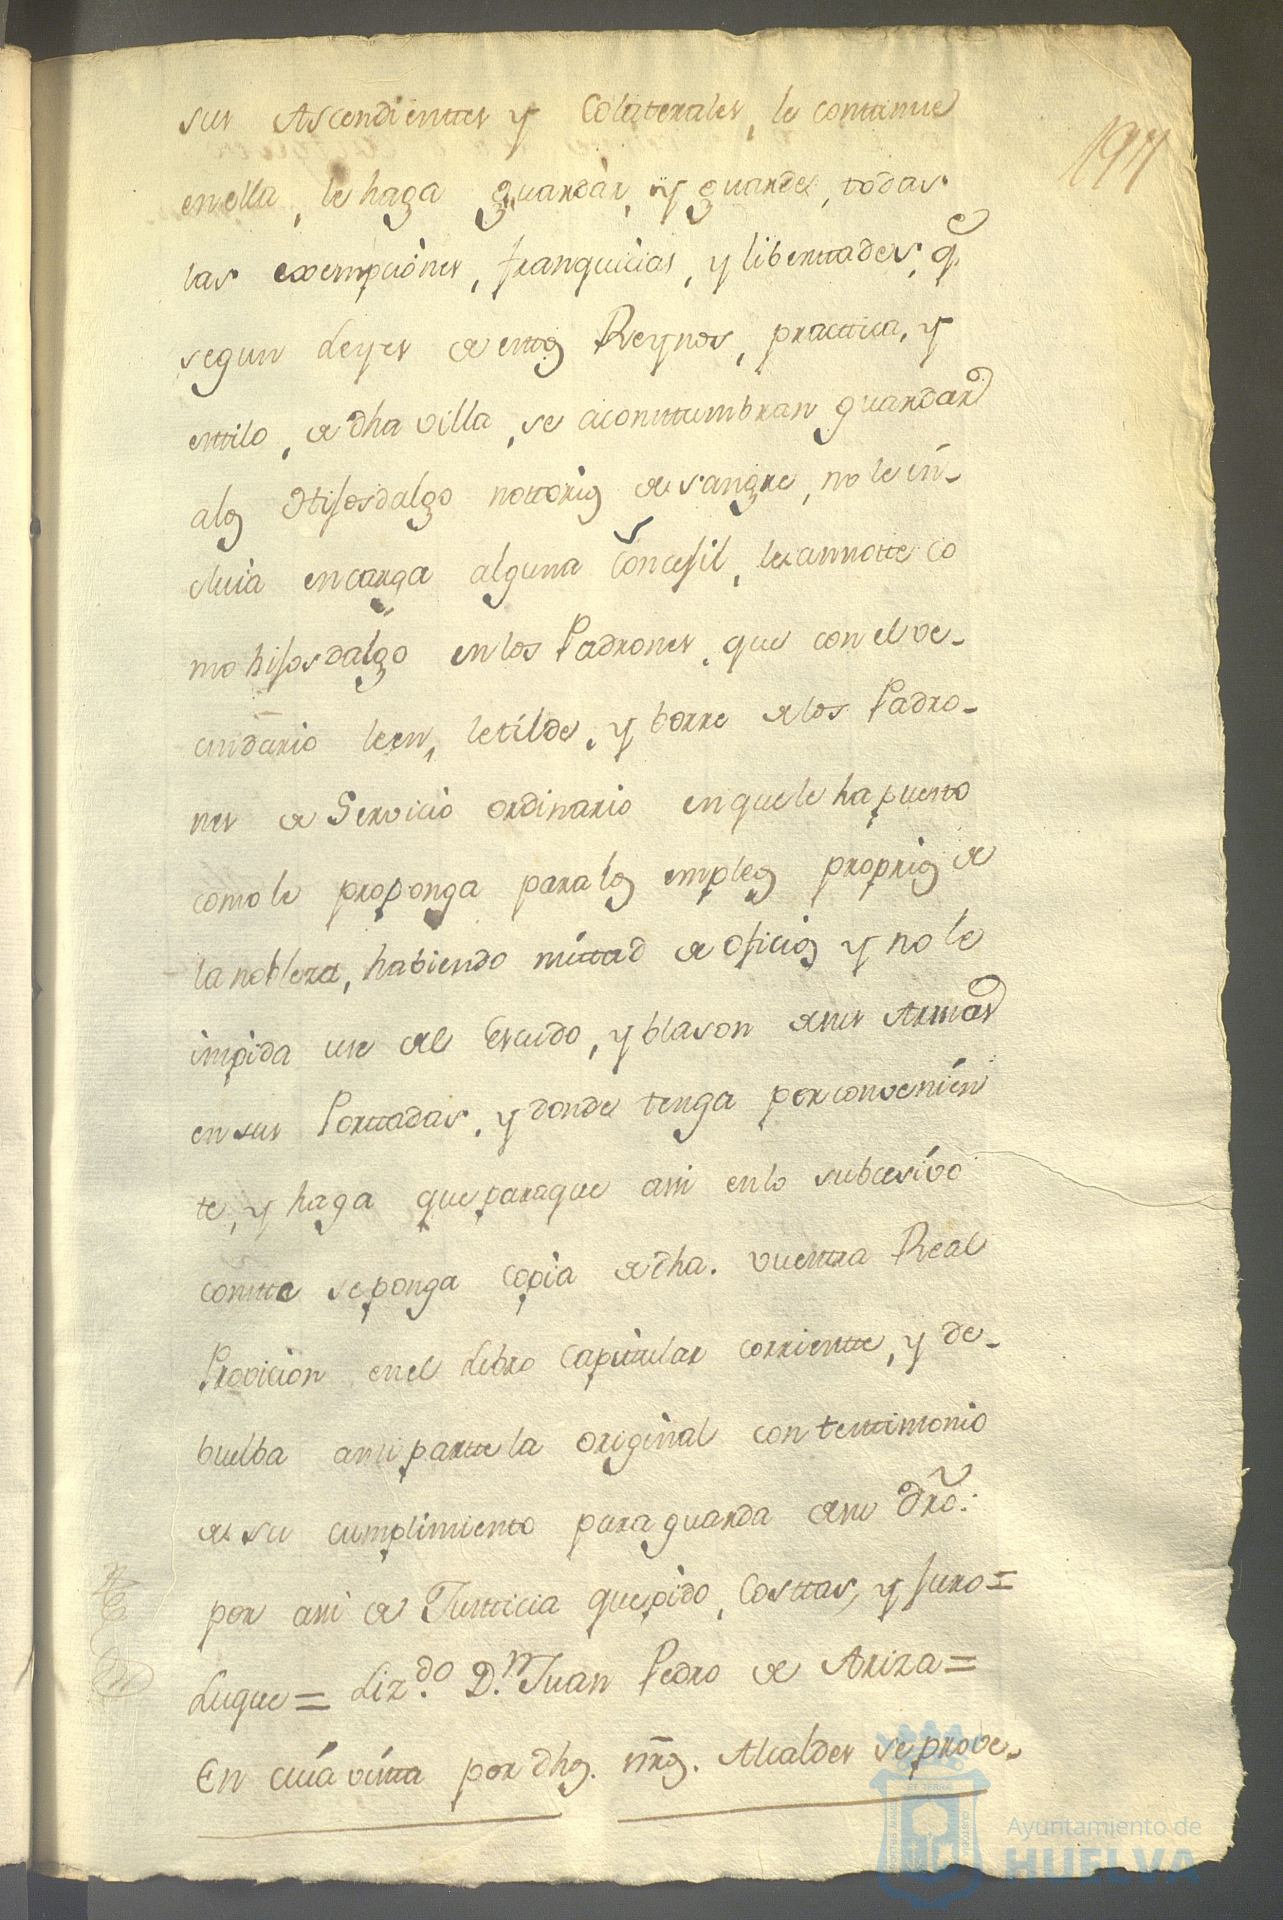 sus Ascendientes y Colaterales, le continue
en ella, le haga guardar, y guarde, todas
las exempciones, franquicias, y libertades, q.e
segun Leyes de estos Reynos, practica, y
estilo, de dha villa, se acostumbran guardar
a los Hijosdalgo nottorios de sangre, no le in-
cluia en carga alguna Concejil, le annotte co
mo hijosdalgo en los Padrones, que con el ve-
cindario le en, le tilde, y borre de los Padro-
nes de Servicio ordinario en que le ha puesto
como le proponga para los empleos proprios de
la nobleza, habiendo mittad de oficios y no le
impida use del Escudo, y blason de sus Armas
en sus Porttadas, y donde tenga por convenien
te, y haga que para que assi en lo subcesivo
constte se ponga copia de dha. vuestra Real
Provicion en el Libro Capitular corriente, y de-
buelba a mi partte la original con testtimonio
de su cumplimiento para guarda de su dro.
por assi de Justticia que pido, Costtas, y juro=
Luque= Liz.do D.n Juan Pedro de Ariza=
En cuia vistta por dhos. nros. Alcaldes se prove-
Ayuntamiento de
HUELVA